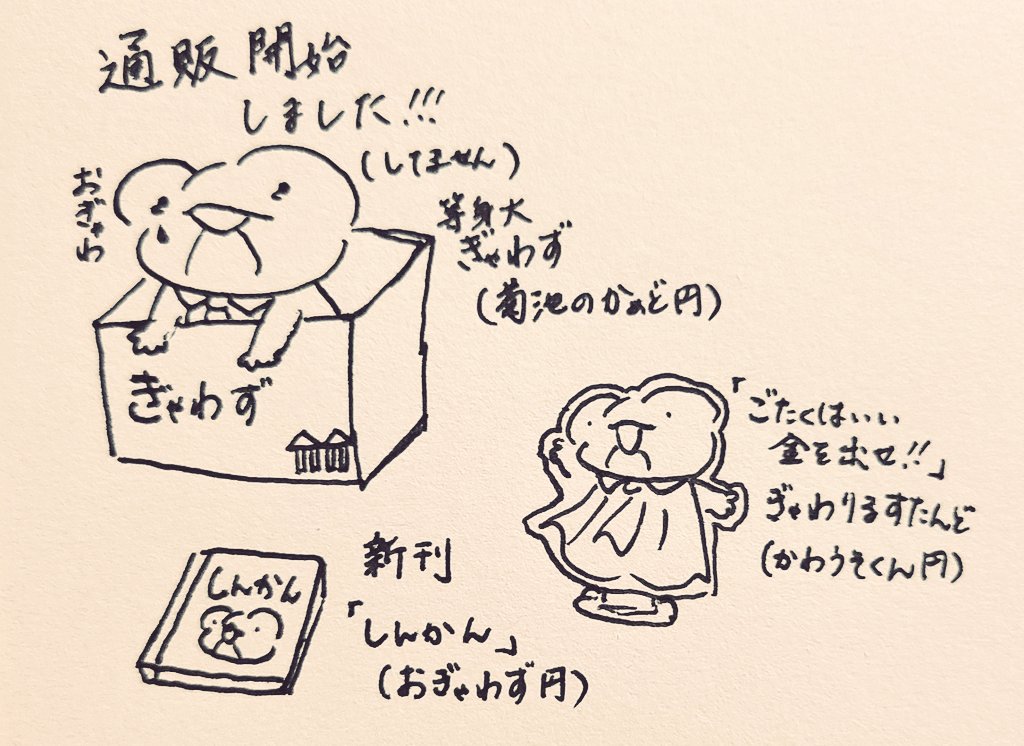 通販開始
しました!!!
(してません)
おぎゃわ
等身大
ぎゃわず
(菊池のかぁど円)
ぎゃわず
「ごたくはいい
金を出せ!!」
ぎゃわりるすたんど
(かわうそくん円)
しんかん
新刊
「しんかん」
(おぎゃわず円)